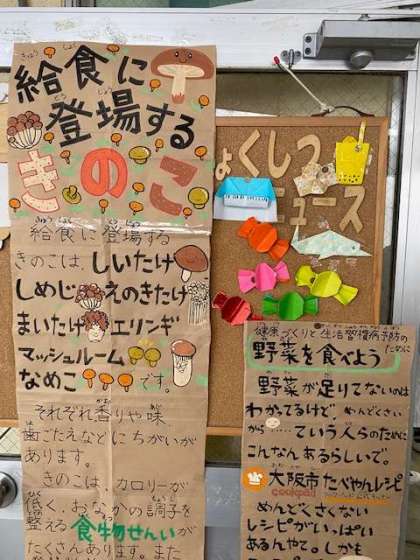 給食に
登場する
きのこ
給食に登場する
きのこは、しいたけ
しめじ えのきたけ
まいたけ エリンギ
マッシュルーム
なめこ です。
それぞれ香りや味、
歯ごたえなどにちがいが
あります。
きのこは、カロリーが
低く、おなかの調子を
整える食物せんい
がたくさんあります。また
ょくしつ
ニュース
健康づくりと生活習慣病予防の
ために
野菜を食べよう
野菜が足りてないのは
わかってるけど、めんどくさい
から……ていう人らのために
こんなんあるらしいで。
大阪市たべやんレシピ
cookpad
めんどくさくない
レシピが、いっぱい
あるんやて。しかも